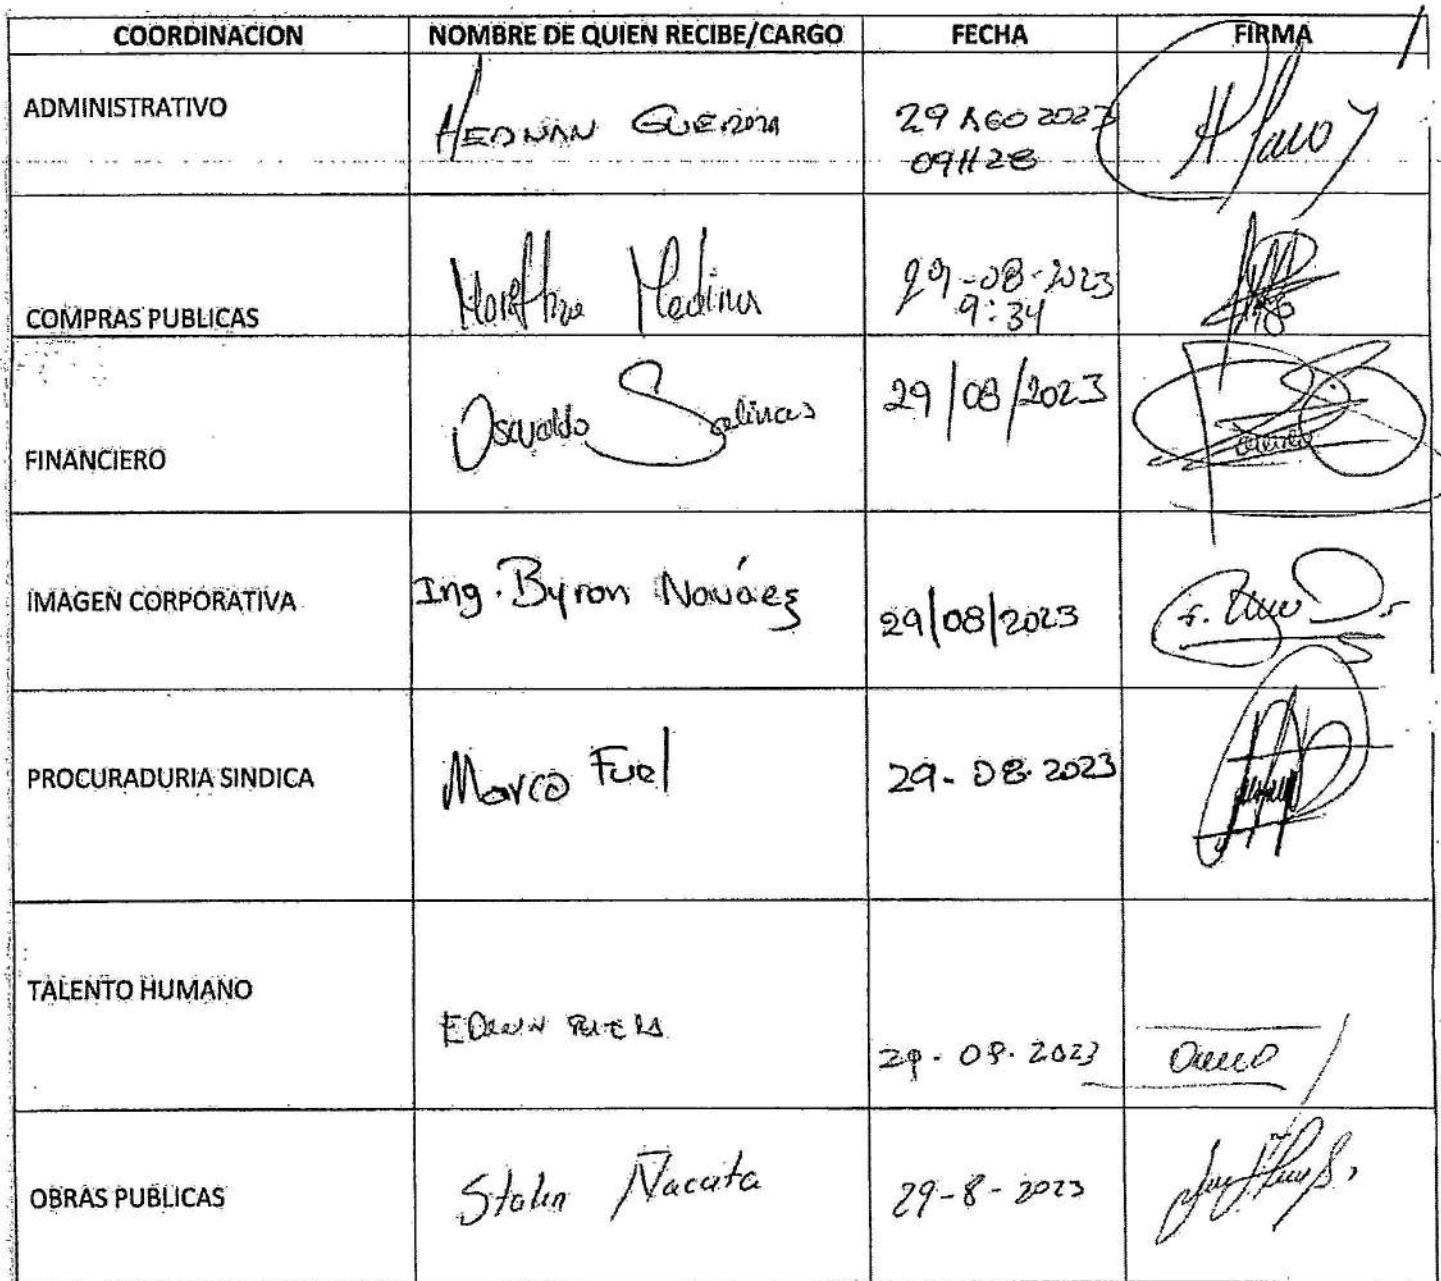 COORDINACION NOMBRE DE QUIEN RECIBE/CARGO FECHA FIRMA
ADMINISTRATIVO HERNAN GUERRA 29 AGO 2023
09H28
COMPRAS PUBLICAS Medina 29-08-2023
9:34
FINANCIERO Osvaldo Salinas 29/08/2023
IMAGEN CORPORATIVA Ing. Byron Naváez 29/08/2023
PROCURADURIA SINDICA Marco Fuel 29-08-2023
TALENTO HUMANO EDWIN 29-08-2023
OBRAS PUBLICAS Stalin Ñacata 29-8-2023